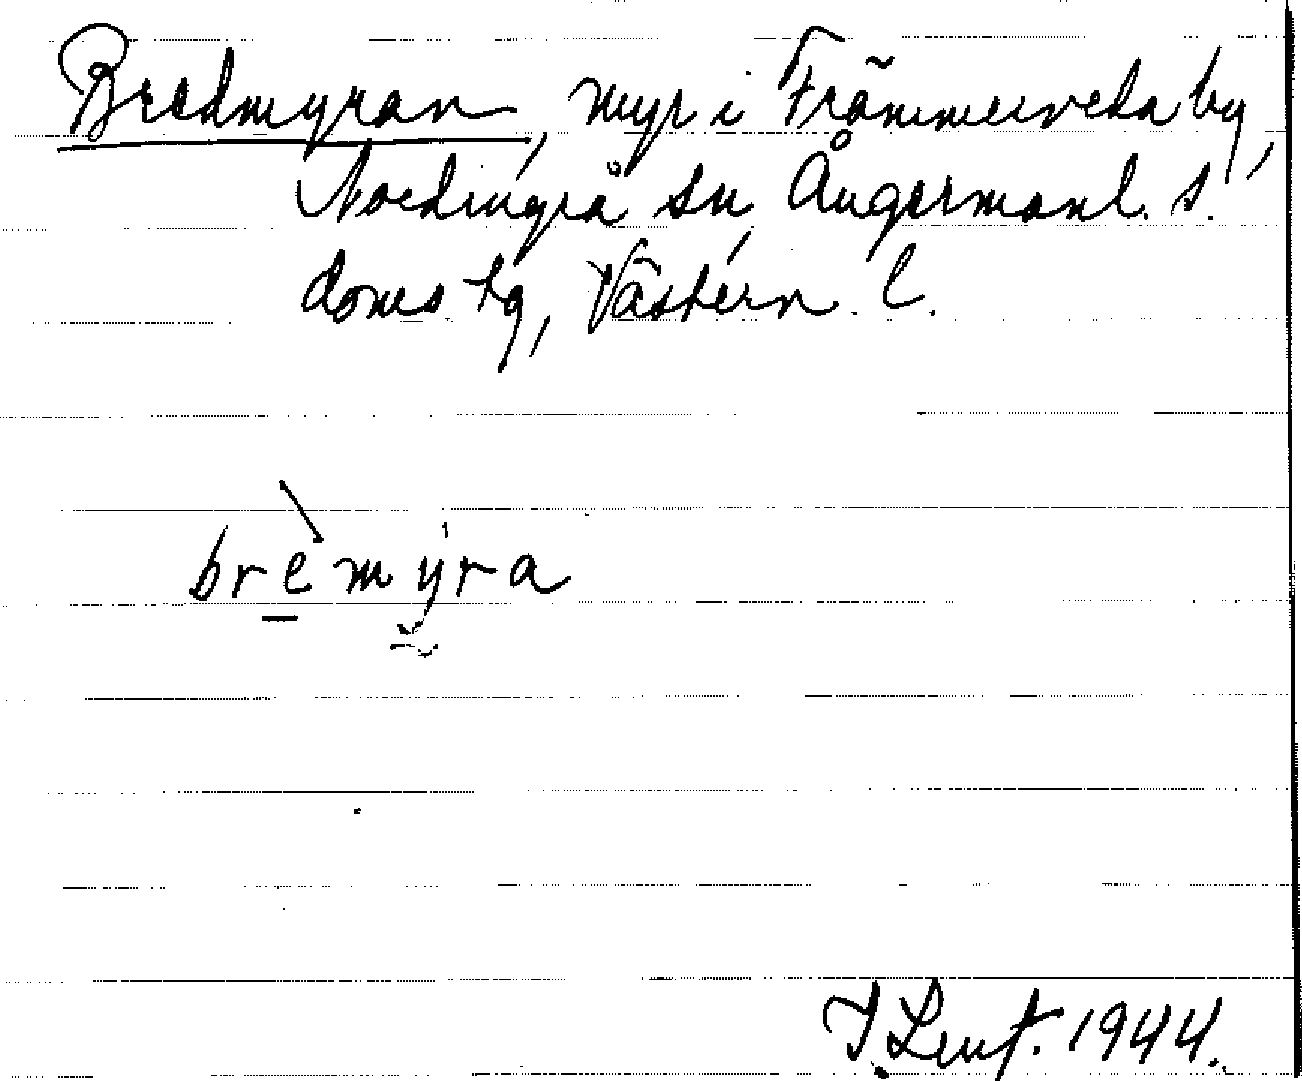 Bredmyran, myr i Främmerveda by,
Nordingrå sn Ångermanl. s.
doms tg, Västern. l.
brèmyra
1944.